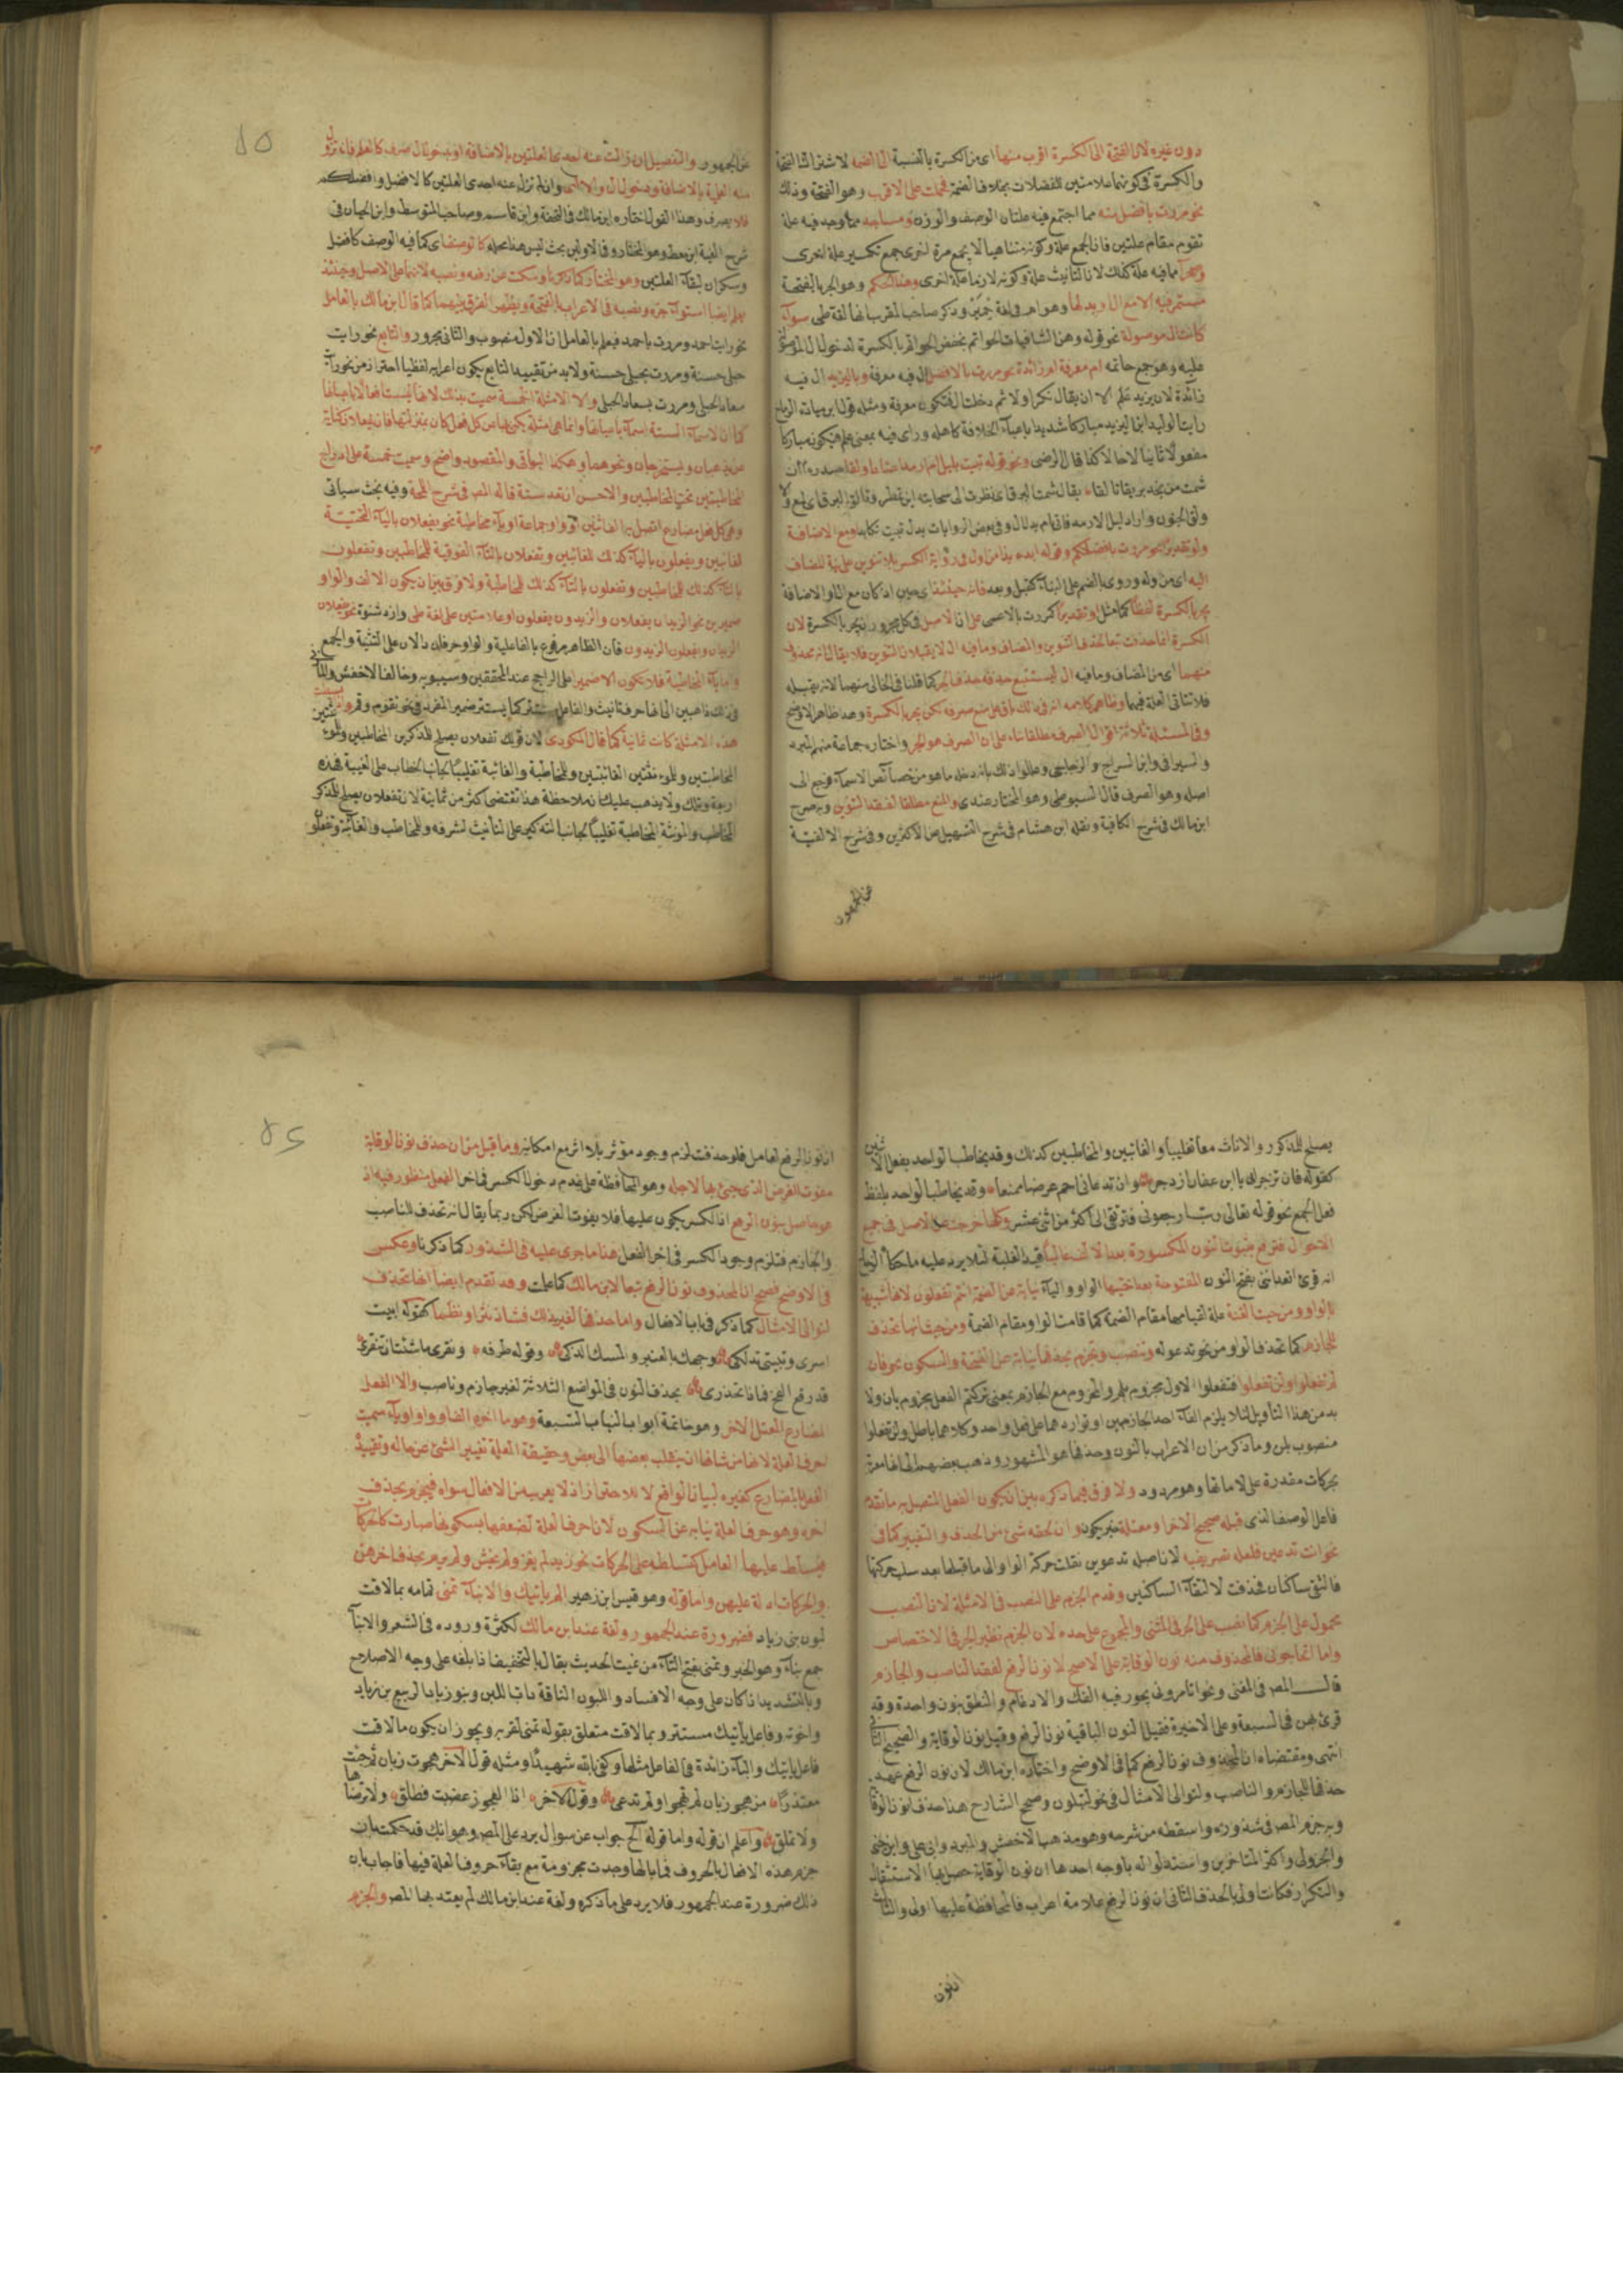 دون غيره لان الفتحة الى الكسرة اقرب منها اى من الكسرة بالنسبة الى الضمة لاشتراك الفتحة
والكسرة فى كونهما علامتين للفضلات بخلاف الضمة فحملت على الاقرب وهو الفتحة وذلك
نحو مررت بافضل منه مما اجتمع فيه علتان الوصف والوزن ومساجد مما وجد فيه علة
تقوم مقام علتين فان الجمع علة وكونه متناهيا لا يجمع مرة اخرى جمع تكسير علة اخرى
وصحرآ مما فيه علة كذلك لان التانيث علة وكونه لازما علة اخرى وهذا الحكم وهو الجر بالفتحة
مستمر فيه الا مع ال او بدلها وهو ام فى لغة حمير وذكر صاحب المقرب انها لغة طى سوآء
كانت ال موصولة نحو قوله وهن الشافيات الحوائم بخفض الحوائم بالكسرة لدخول ال الموصولة
عليه وهو جمع حائمه ام معرفة ام زائدة نحو مررت بالافضل ال فيه معرفة وباليزيد ال فيه
زائدة لان يزيد علم الا ان يقال نكر اولا ثم دخلت ال فتكون معرفة ومثله قول ابن ميادة الرماح
رايت الوليد ابن اليزيد مباركا شديدا باعبآء الخلافة كاهله وراى فيه بمعنى علم فيكون مباركا
مفعولا ثانيا لا حالا كذا قال الرضى ونحو قوله تبيت بليل امارمد اعتاد اولقا صدره أأن
شمت من نجد بريقا تالقا يقال شمت البرق اى نظرت الى سحابته اين تمطر وتالق البرق اى لمع
ولق الجنون واراد ليل الارمد فاتى بام بدل ال وفى بعض الروايات بدل تبيت تكابد ومع الاضافة
ولو تقديرا نحو مررت بافضلكم وقوله ابدء بذا من اول فى رواية الكسر بلا تنوين على نية المضاف
اليه اى من اوله وروى بالضم على البنآء كقبل وبعد فانه حينئذ اى حين اذ كان مع ال او الاضافة
يجر بالكسرة لفظا كما مثل او تقديرا كمررت بالاعمى على ان الاصل فى كل مجرور ان يجر بالكسرة لان
الكسرة انما حذفت تبعا لحذف التنوين والمضاف وما فيه ال لا يقبلان التنوين فلا يقال انه محذوف
منهما اى من المضاف وما فيه ال ليستتبع حذفه حذف الجر كما قلنا فى الخالى منهما لانه يقبله
فلا تتاتى العلة فيها وظاهر كلامه انه فى ذلك باق على منع صرفه لكن يجر بالكسرة وهو ظاهر الاوضح
وفى المسئلة ثلاثة اقوال الصرف مطلقا بنآء على ان الصرف هو الجر واختاره جماعة منهم المبرد
والسيرافى وابن السراج والزجاجى وعللوا ذلك بانه دخله ما هو من خصآئص الاسمآء فرجع الى
اصله وهو الصرف قال السيوطى وهو المختار عندى والمنع مطلقا لفقد التنوين وبه صرح
ابن مالك فى شرح الكافية ونقله ابن هشام فى شرح التسهيل عن الاكثرين وفى شرح الالفية
عن الجمهور
٥١
عن الجمهور والتفصيل ان زالت عنه احدى العلتين بالاضافة او بدخول ال صرف كالعلم فانه تزول
منه العلمية بالاضافة ودخول ال والا اى وان لم تزل عنه احدى العلتين كالافضل وافضلكم
فلا يصرف وهذا القول اختاره ابن مالك فى التحفة وابن قاسم وصاحب المتوسط وابن الحباز فى
شرح الفية ابن معط وهو المختار وفى الاولين بحث ليس هذا محله كالوصف اى كما فيه الوصف كافضل
وسكران لبقآء العلتين وهو المختار كما ذكرنا وسكت عن رفعه ونصبه لانهما على الاصل وحينئذ
يعلم ايضا استوآء جره ونصبه فى الاعراب بالفتحة ويظهر الفرق بينهما كما قال ابن مالك بالعامل
نحو رايت احمد ومررت باحمد فيعلم بالعامل ان الاول منصوب والثانى مجرور والتابع نحو رايت
حبلى حسنة ومررت بحبلى حسنة ولابد من تقييد التابع بكون اعرابه لفظيا احترازا من نحو رآيت
سعاد الحبلى ومررت بسعاد الحبلى والا الامثلة الخمسة سميت بذلك لانها ليست افعالا باعيانها
كما ان الاسمآء الستة اسمآء باعيانها وانما هى امثلة يكنى بها عن كل فعل كان بمنزلتها فان يفعلان كناية
عن يذهبان ويستخرجان ونحوهما وهكذا البواقى والمقصود واضح وسميت خمسة على ادراج
المخاطبتين تحت المخاطبين والاحسن ان تعد ستة قاله المص فى شرح اللمحة وفيه بحث سياتى
وهى كل فعل مضارع اتصل به الف اثنين او واو جماعة او يآء مخاطبة نحو يفعلان باليآء التحتيتة
لغائبين ويفعلون باليآء كذلك للغائبين وتفعلان بالتآء الفوقية للمخاطبين وتفعلون
بالتآء كذلك للمخاطبين وتفعلون بالتآء كذلك للمخاطبة ولا فرق بين ان يكون الالف والواو
ضميرين نحو الزيدان يفعلان والزيدون يفعلون او علامتين على لغة طى وازد شنوة نحو يفعلان
الزيدان ويفعلون الزيدون فان الظاهر مرفوع بالفاعلية والواو حرفان دالان على التثنية والجمع
واما يآء المخاطبة فلا تكون الا ضميرا على الراجح عند المحققين وسيبويه وخالف الاخفش والمازنى
فى ذلك ذاهبين الى انها حرف تانيث والفاعل مستتر كما يستتر ضمير المفرد فى نحو تقوم وقم
هذه الامثلة كانت ثمانية كما قال المكودى لان قولك تفعلان يصلح للمذكرين المخاطبين وللمؤنثتين
المخاطبتين وللمؤنثتين الغائبتين وللمخاطبة والغائبة تغليبًا لجانب الخطاب على الغيبة فهذه
اربعة وذلك ولا يذهب عليك ان ملاحظة هذا تقتضى اكثر من ثمانية لان تفعلان يصلح للمذكر
المخاطب والمونثة المخاطبة تغليبًا لجانب التذكير على التانيث لشرفه وللمخاطب والغائبة وتفعلون
يصلح للذكور والاناث معا تغليبا وللغائبين والمخاطبين كذلك وقد يخاطب الواحد بفعل الاثنين
كقوله فان تزجرانى يا ابن عفان ازدجر وان تدعانى احم عرضا ممنعا وقد يخاطب الواحد بلفظ
فعل الجمع نحو قوله تعالى رب ارجعون فترتقى الى اكثر من اثنى عشر وكلها خرجت عن الاصل فى جميع
الاحوال فترفع بثبوت النون المكسورة بعد الالف غالبا قيد الغلبة لئلا يرد عليه ما حكاه
انه قرئ اتعدانى بفتح النون المفتوحة بعد اختيها الواو واليآء نيابة عن الضمة انتم تفعلون لانها شبيهة
بالواو ومن حيث الغنة علة لقيامها مقام الضمة كما قامت الواو مقام الضمة ومن حيث انها تحذف
للجازم كما تحذف الواو من نحو تدعو له وتنصب وتجزم بحذفها نيابة عن الفتحة والسكون نحو فان
لم تفعلوا ولن تفعلوا فتفعلوا الاول مجزوم بلم ولم مع الجازم بمعنى تركتم الفعل مجزوم بان ولا
بد من هذا التاويل لئلا يلزم الغآء احد الجازمين او تواردهما على فعل واحد وكلاهما باطل ولن تفعلوا
منصوب بلن وما ذكر من ان الاعراب بالنون وحذفها هو المشهور وذهب بعضهم الى انها معربة
بحركات مقدرة على لاماتها وهو مردود ولا فرق فيما ذكره بين ان يكون الفعل المتصل به ما تقدم
فاعل الوصف الذى قبله صحيح الاخر او معتلة خبر يكون وان لحقه شئ من الحذف والتغيير كما فى
نحو انت تدعين فلعله تصريفية لان اصله تدعوين نقلت حركة الواو الى ما قبلها بعد سلب حركتها
فالتقى ساكنان فحذفت لالتقآء الساكنين وقدم الجزم على النصب فى الامثلة لان النصب
محمول على الجزم كما نصب على الجر فى المثنى والمجموع على حده لان الجزم نظير الجر فى الاختصاص
واما اتحاجونى فالمحذوف منه نون الوقاية على الاصح لا نون الرفع لفقد الناصب والجازم
قال المص فى المغنى ونحو تامرونى يجوز فيه الفك والادغام والنطق بنون واحدة وقد
قرئ بهن فى السبعة وعلى الاخيرة فقيل النون الباقية نون الرفع وقيل نون الوقاية والصحيح الثانى
انتهى ومقتضاه ان المحذوف نون الرفع كما فى الاوضح واختاره ابن مالك لان نون الرفع عهد
حذفها للجازم والناصب ولتوالى الامثال فى نحو لتبلون وصحح الشارح هنا حذف نون الوقاية
وبه جزم المص فى شذوره واسقطه من شرحه وهو مذهب الاخفش والمبرد وابى على وابن جنى
والجزولى واكثر المتاخرين واستدلوا له باوجه احدها ان نون الوقاية حصل بها الاستثقال
والتكرار فكانت اولى بالحذف الثانى ان نون الرفع علامة اعراب فالمحافظة عليها اولى والثالث
ان نون
٥٢
ان نون الرفع لعامل فلو حذفت لزم وجود مؤثر بلا اثر مع امكانه وما قيل من ان حذف نون الوقاية
مفوت للغرض الذى جئ بها لاجله وهو المحافظة على عدم دخول الكسر فى اخر الفعل منظور فيه اذ
هو حاصل بنون الرفع اذ الكسر يكون عليها فلا يفوت الغرض لكن ربما يقال انه تحذف للناصب
والجازم فتلزم وجود الكسر فى اخر الفعل هذا ما جرى عليه فى الشذور كما ذكرنا وعكس
فى الاوضح فصحح ان المحذوف نون الرفع تبعا لابن مالك كما علمت وقد تقدم ايضا انها تحذف
لتوالى الامثال كما ذكر فى باب الافعال واما حذفها لغير ذلك فشاذ نثرا ونظما كقوله ابيت
اسرى وتبيتى تدلكى وجهك بالعنبر والمسك الذكى وقوله طرفه ونقرى ما شئت ان تنقرى
قد رفع الفخ فماذا تحذرى بحذف النون فى المواضع الثلاثة لغير جازم وناصب والا الفعل
المضارع المعتل الاخر وهو خاتمة ابواب النيابة السبعة وهو ما اخره الف او واو او يآء سميت
احرف العلة لان من شانها ان ينقلب بعضها الى بعض وحقيقة العلة تغيير الشئ عن حاله وتقييدُ
الفعل بالمضارع كغيره لبيان الواقع لا للاحتراز اذ لا يعرب من الافعال سواه فيجزم بحذف
اخره وهو حرف العلة نيابة عن السكون لان احرف العلة لضعفها بسكونها صارت كالحركات
فيتسلط عليها العامل كتسلطه على الحركات نحو زيد لم يغز ولم يخش ولم يرم بحذف اخرهن
والحركات ادلة عليهن واما قوله وهو قيس ابن زهير الم ياتيك والانبآء تنمى تمامه بما لاقت
لبون بنى زياد فضرورة عند الجمهور ولغة عند ابن مالك لكثرة وروده فى الشعر والانبآ
جمع نبآء وهو الخبر وتنمى بفتح التآء من نميت الحديث يقال بالتخفيف اذا بلغه على وجه الاصلاح
وبالتشديد اذا كان على وجه الافساد واللبون الناقة ذات اللبن وبنو زياد الربيع بن زياد
واخوته وفاعل ياتيك مستتر وبما لاقت متعلق بقوله تنمى لقربه ويجوز ان يكون ما لاقت
فاعل ياتيك والبآء زائدة فى الفاعل مثلها وكفى بالله شهيدًا ومثله قول الاخر هجوت زبان ثم جئت
معتذرًا من هجو زبان لم تهجو ولم تدعى وقول الاخر اذا العجوز غضبت فطلق ولا ترضاها
ولا تملق واعلم ان قوله واما قوله الخ جواب عن سوال يرد على المص وهو انك قد حكمت بان
جزم هذه الافعال بالحروف فما بالها وجدت مجزومة مع بقآء حروف العلة فيها فاجاب بان
ذلك ضرورة عند الجمهور فلا يرد على ما ذكره ولغة عند ابن مالك لم يعتد بها المص والجزم